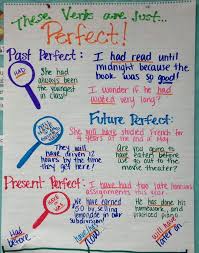 These Verbs are Just...
Perfect!
Past Perfect:
I had read until
midnight because the
book was so good!
HAD
She had
always been
the youngest
in class!
I wonder if he had
waited very long?
Future Perfect:
She will have studied French for
4 years at the end of May.
They will
have driven
12 hours by the
time they
get here!
Are you going to
have eaten before
we go out to the
movie theater?
Present Perfect:
I have had two late homework
assignments this year.
He have earned
$50 by selling
lemonade in our
subdivision!
He has done
his homework,
and practiced
piano.
Had
before
later on